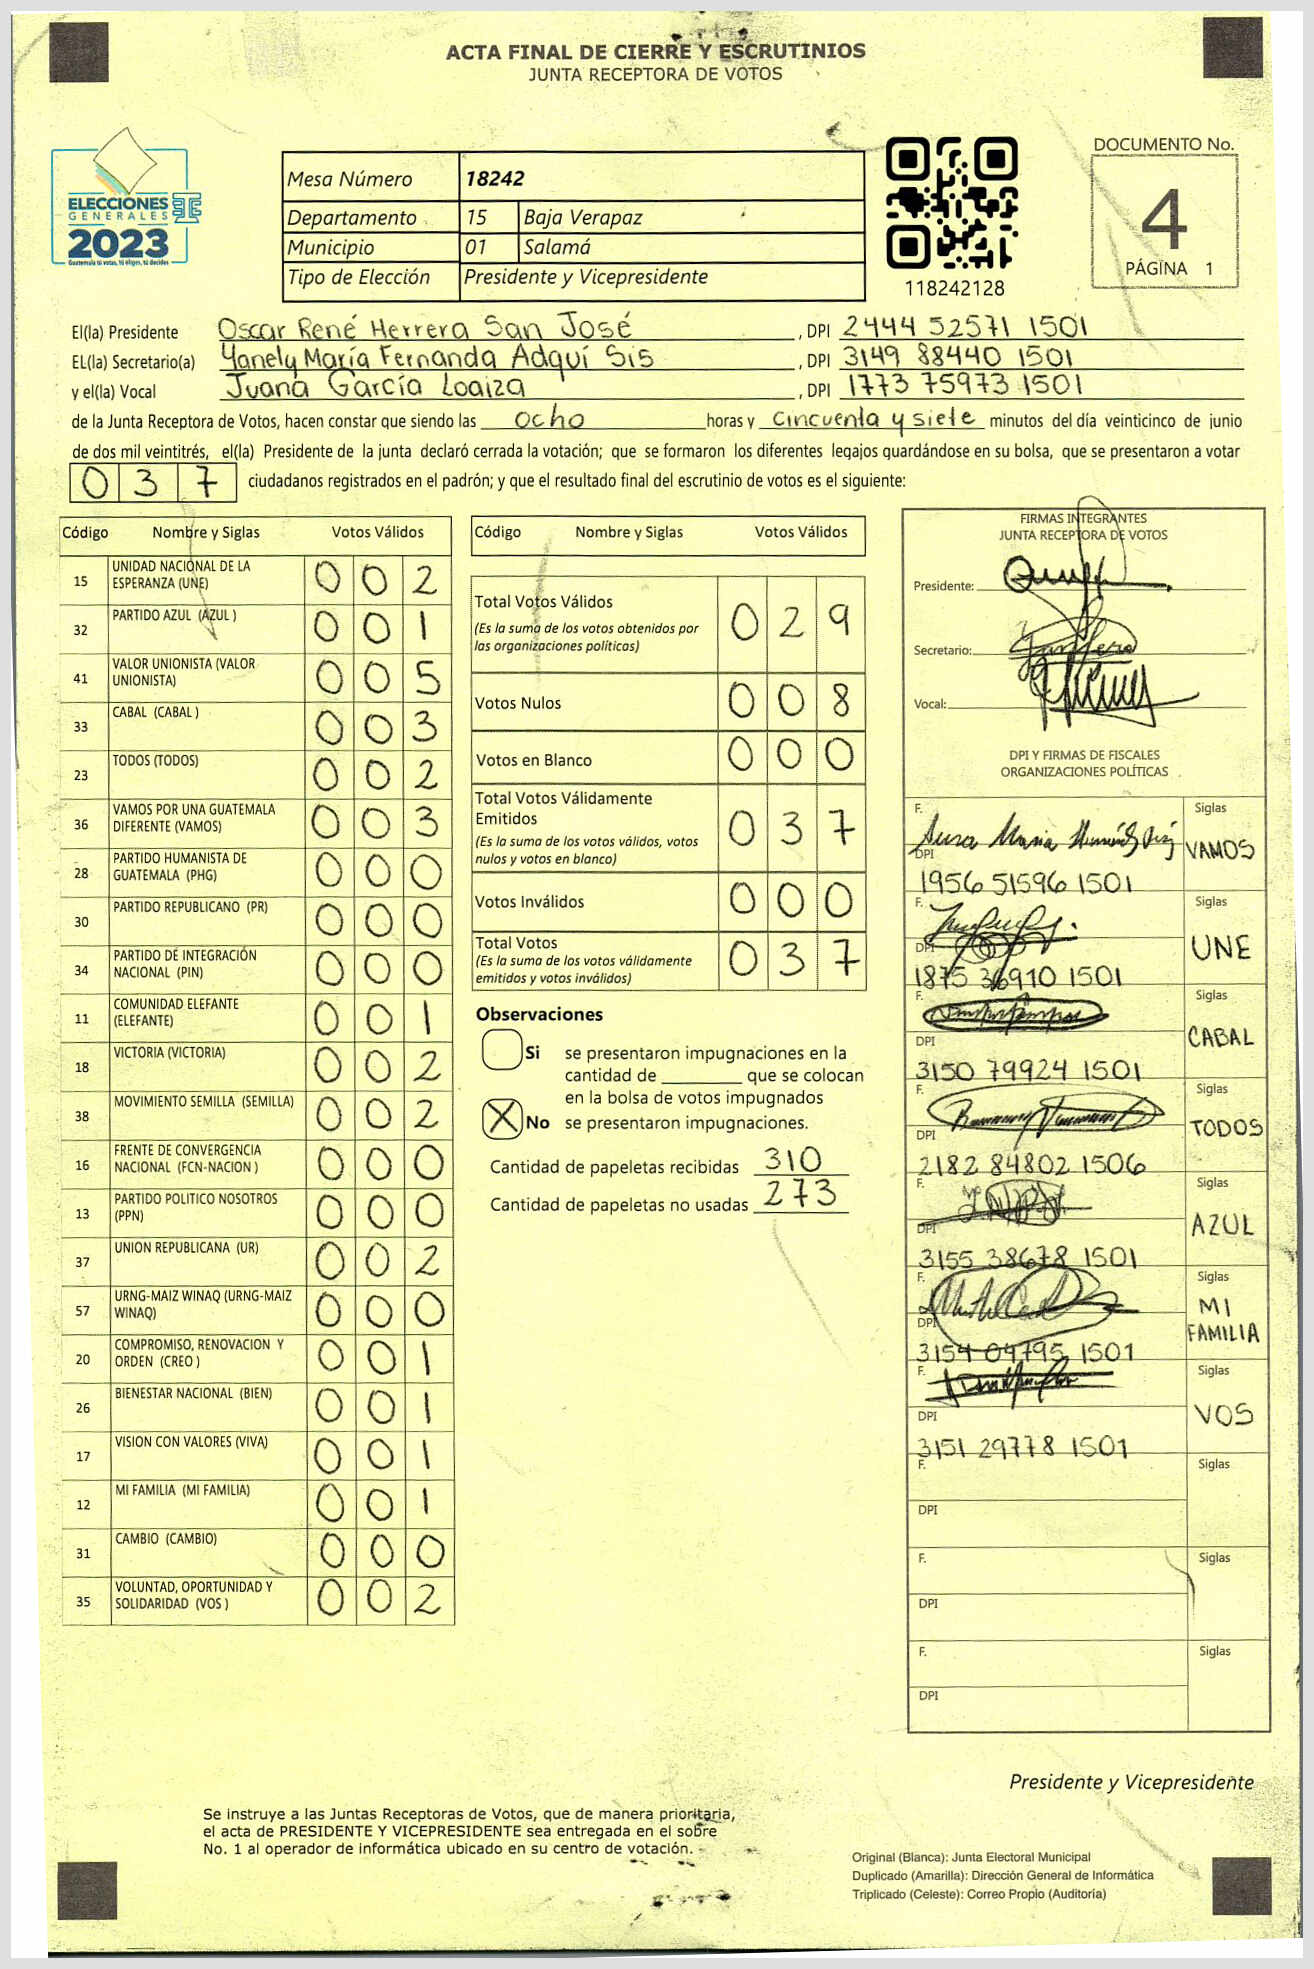 ACTA FINAL DE CIERRE Y ESCRUTINIOS
JUNTA RECEPTORA DE VOTOS
ELECCIONES
GENERALES
2023
Guatemala tú votas, tú eliges, tú decides
Mesa Número 18242
Departamento 15 Baja Verapaz
Municipio 01 Salamá
Tipo de Elección Presidente y Vicepresidente
118242128
DOCUMENTO No.
4
PÁGINA 1
El(la) Presidente Oscar René Herrera San José , DPI 2444 52571 1501
EL(la) Secretario(a) Yanely María Fernanda Adquí Sis , DPI 3149 88440 1501
y el(la) Vocal Juana García Loaiza , DPI 1773 75973 1501
de la Junta Receptora de Votos, hacen constar que siendo las ocho horas y cincuenta y siete minutos del día veinticinco de junio
de dos mil veintitrés, el(la) Presidente de la junta declaró cerrada la votación; que se formaron los diferentes legajos guardándose en su bolsa, que se presentaron a votar
037 ciudadanos registrados en el padrón; y que el resultado final del escrutinio de votos es el siguiente:
Código Nombre y Siglas Votos Válidos
15 UNIDAD NACIONAL DE LA ESPERANZA (UNE) 002
32 PARTIDO AZUL (AZUL ) 001
41 VALOR UNIONISTA (VALOR UNIONISTA) 005
33 CABAL (CABAL ) 003
23 TODOS (TODOS) 002
36 VAMOS POR UNA GUATEMALA DIFERENTE (VAMOS) 003
28 PARTIDO HUMANISTA DE GUATEMALA (PHG) 000
30 PARTIDO REPUBLICANO (PR) 000
34 PARTIDO DE INTEGRACIÓN NACIONAL (PIN) 000
11 COMUNIDAD ELEFANTE (ELEFANTE) 001
18 VICTORIA (VICTORIA) 002
38 MOVIMIENTO SEMILLA (SEMILLA) 002
16 FRENTE DE CONVERGENCIA NACIONAL (FCN-NACION ) 000
13 PARTIDO POLITICO NOSOTROS (PPN) 000
37 UNION REPUBLICANA (UR) 002
57 URNG-MAIZ WINAQ (URNG-MAIZ WINAQ) 000
20 COMPROMISO, RENOVACION Y ORDEN (CREO ) 001
26 BIENESTAR NACIONAL (BIEN) 001
17 VISION CON VALORES (VIVA) 001
12 MI FAMILIA (MI FAMILIA) 001
31 CAMBIO (CAMBIO) 000
35 VOLUNTAD, OPORTUNIDAD Y SOLIDARIDAD (VOS ) 002
Código Nombre y Siglas Votos Válidos
Total Votos Válidos 029
(Es la suma de los votos obtenidos por
las organizaciones políticas)
Votos Nulos 008
Votos en Blanco 000
Total Votos Válidamente
Emitidos 037
(Es la suma de los votos válidos, votos
nulos y votos en blanco)
Votos Inválidos 000
Total Votos 037
(Es la suma de los votos válidamente
emitidos y votos inválidos)
Observaciones
Si se presentaron impugnaciones en la
cantidad de ________ que se colocan
en la bolsa de votos impugnados
X No se presentaron impugnaciones.
Cantidad de papeletas recibidas 310
Cantidad de papeletas no usadas 273
FIRMAS INTEGRANTES
JUNTA RECEPTORA DE VOTOS
Presidente:
Secretario:
Vocal:
DPI Y FIRMAS DE FISCALES
ORGANIZACIONES POLÍTICAS
F. Siglas
Maria VAMOS
DPI
1956 51596 1501
F. Siglas
UNE
DPI
1875 36910 1501
F. Siglas
CABAL
DPI
3150 79924 1501
F. Siglas
TODOS
DPI
2182 84802 1506
F. Siglas
AZUL
DPI
3155 38678 1501
F. Siglas
MI
FAMILIA
DPI
3154 04795 1501
F. Siglas
VOS
DPI
3151 29778 1501
F. Siglas
DPI
F. Siglas
DPI
F. Siglas
DPI
Presidente y Vicepresidente
Se instruye a las Juntas Receptoras de Votos, que de manera prioritaria,
el acta de PRESIDENTE Y VICEPRESIDENTE sea entregada en el sobre
No. 1 al operador de informática ubicado en su centro de votación.
Original (Blanca): Junta Electoral Municipal
Duplicado (Amarilla): Dirección General de Informática
Triplicado (Celeste): Correo Propio (Auditoría)